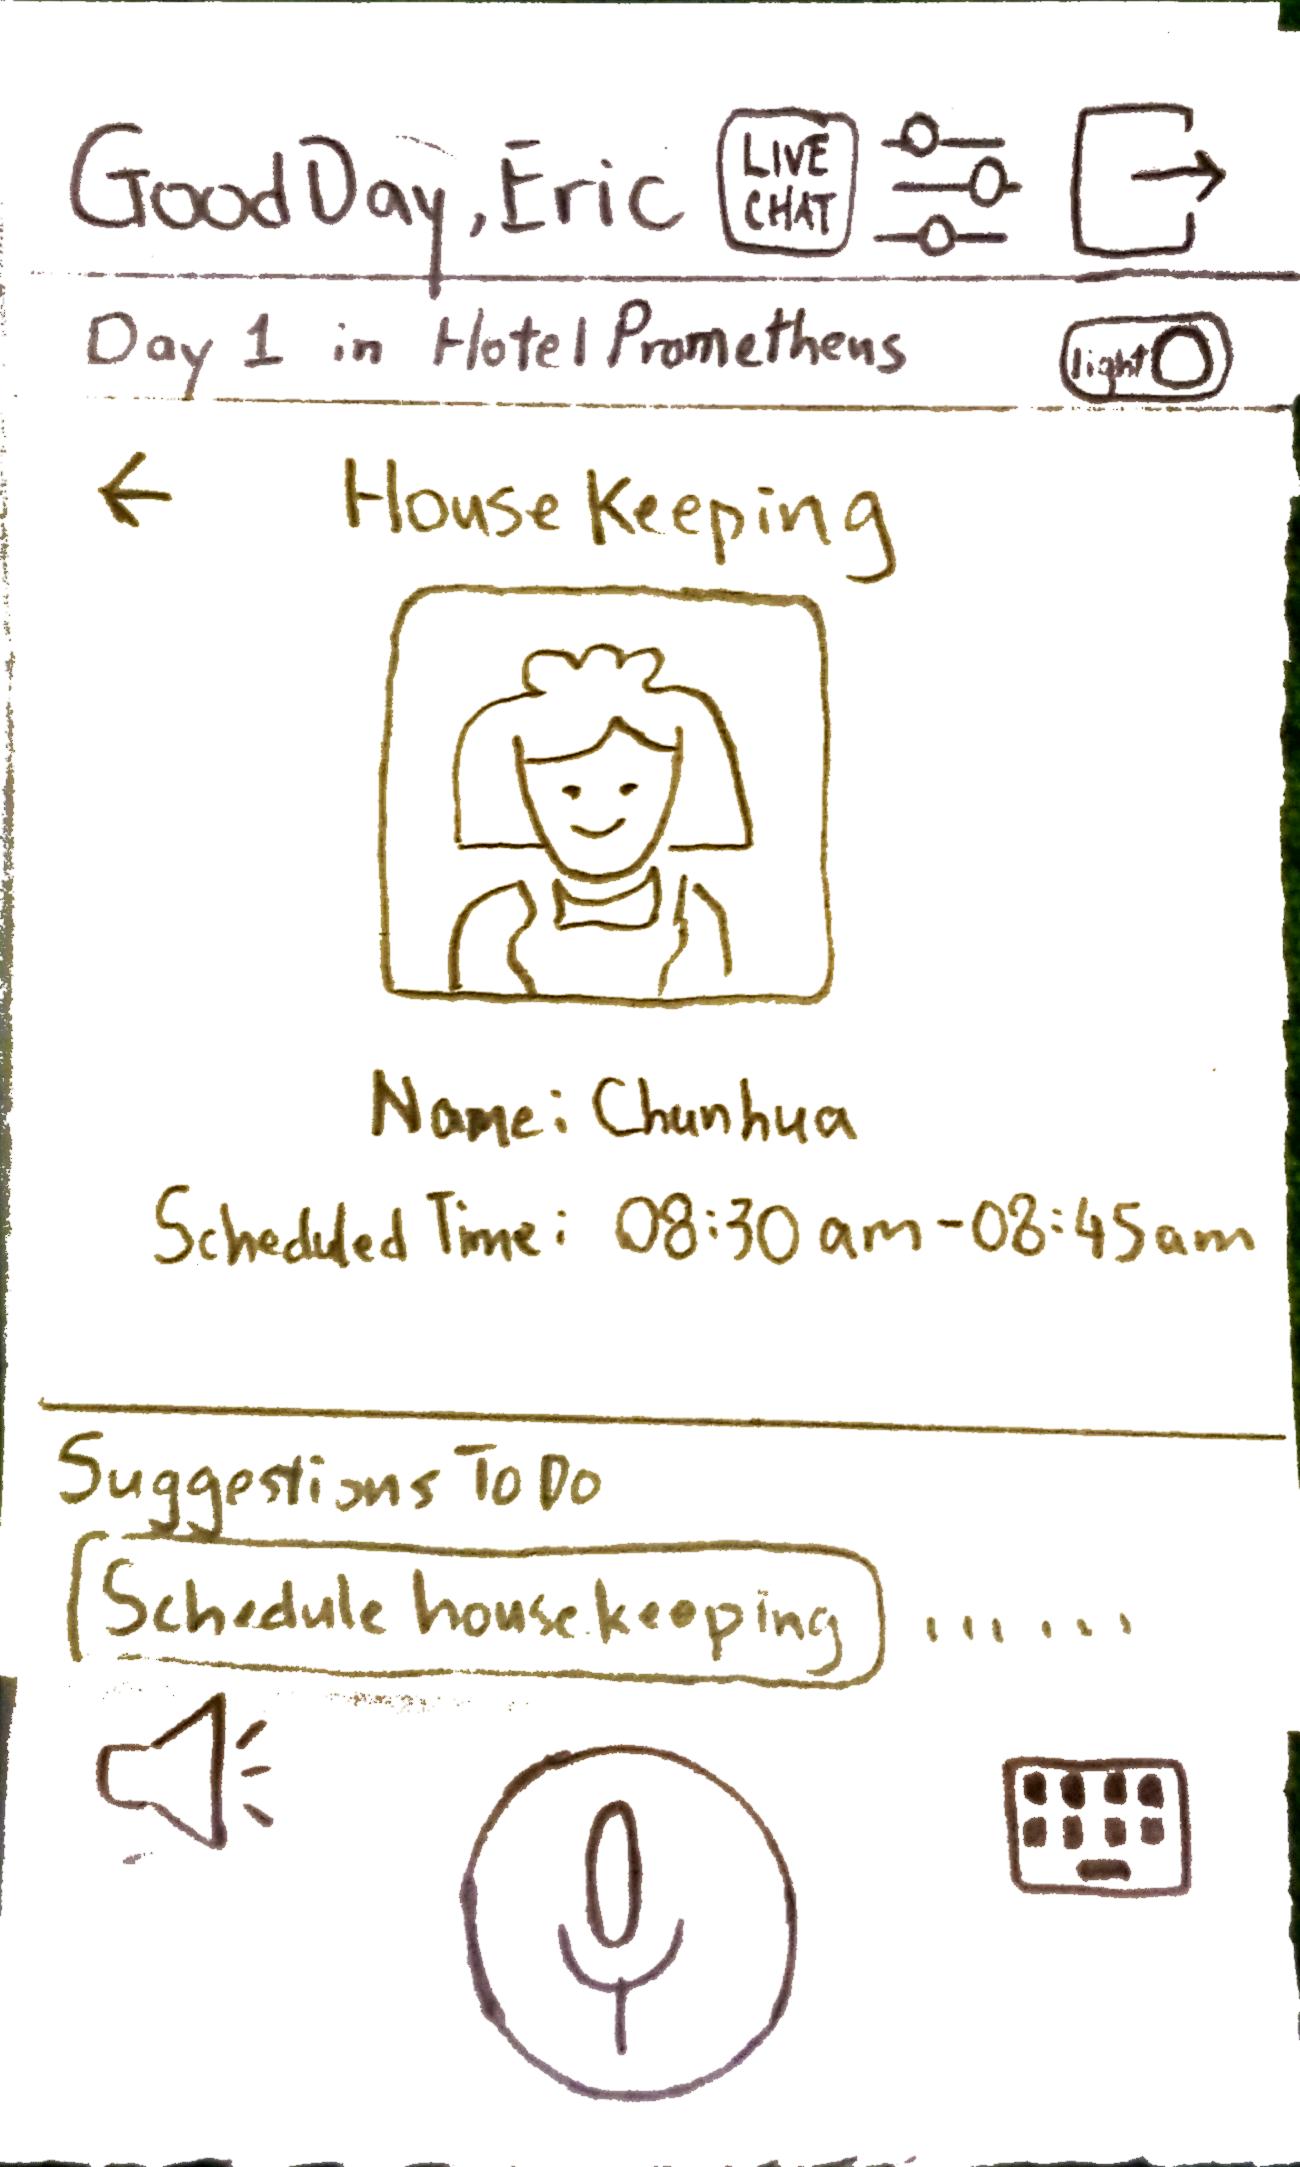 Good Day, Eric
LIVE
CHAT
Day 1 in Hotel Promethens
light
House Keeping
Name: Chunhua
Scheduled Time: 08:30 am - 08:45 am
Suggestions To Do
Schedule housekeeping ......